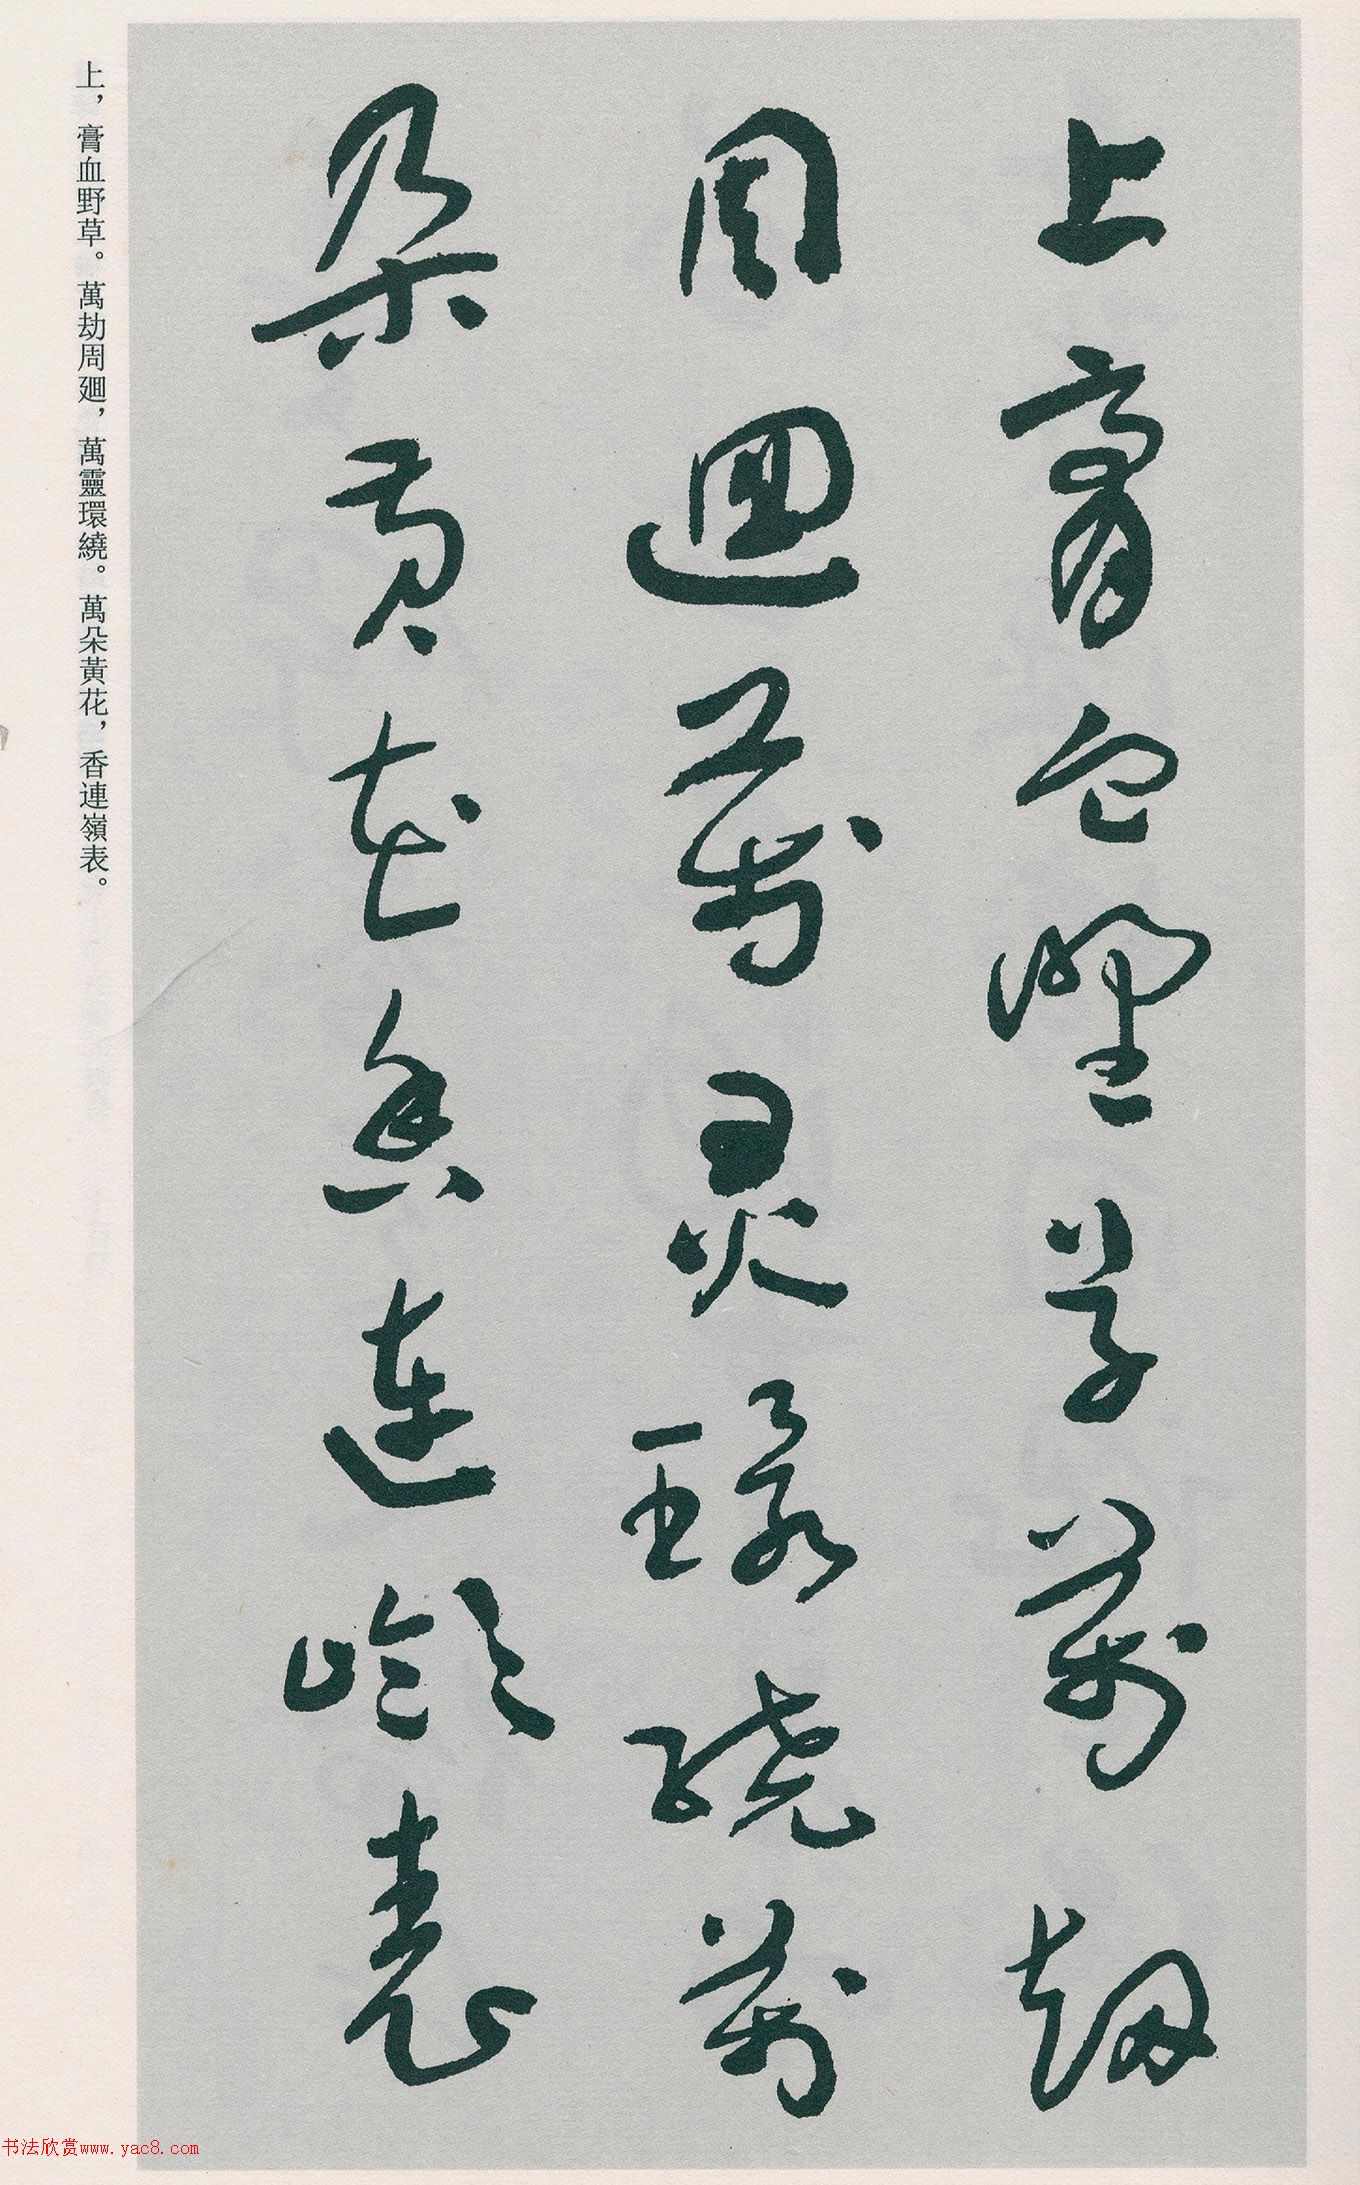 上膏血野草萬劫
周迴萬靈環繞萬
朵黃花香連嶺表
上，膏血野草。萬劫周迴，萬靈環繞。萬朵黃花，香連嶺表。
书法欣赏www.yac8.com